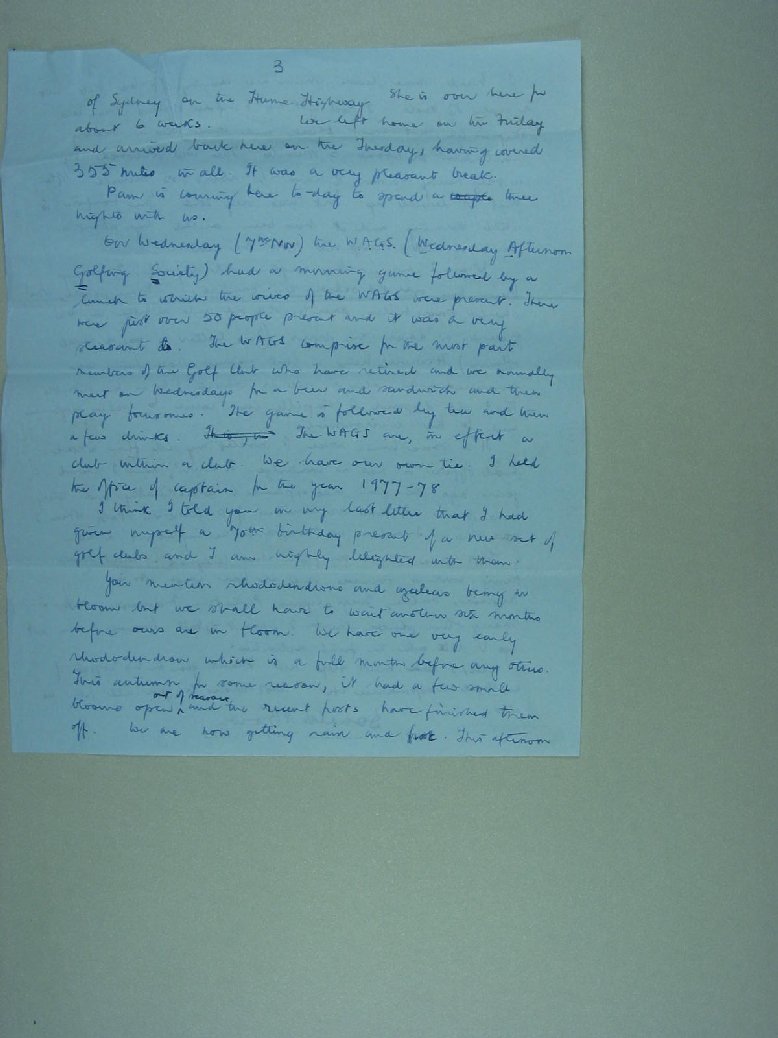 3
of Sydney on the Hume Highway. She is over here for
about 6 weeks. We left home on the Friday
and arrived back here on the Tuesday, having covered
355 miles in all. It was a very pleasant break.
Pam is coming here to-day to spend a couple three
nights with us.
On Wednesday (7th Nov) the W.A.G.S. (Wednesday Afternoon
Golfing Society) had a morning game followed by a
lunch to which the wives of the WAGS were present. There
were just over 50 people present and it was a very
pleasant. The WAGS comprise for the most part
members of the Golf Club who have retired and we normally
meet on Wednesdays for a beer and sandwich and then
play foursomes. The game is followed by tea and then
a few drinks. The WAGS are, in effect a
club within a club. We have our own tie. I held
the office of captain for the year 1977-78
I think I told you in my last letter that I had
given myself a 70th birthday present of a new set of
golf clubs and I am highly delighted with them.
You mention rhododendrons and azaleas being in
bloom but we shall have to wait another six months
before ours are in bloom. We have one very early
rhododendron which is a full month before any others.
This autumn for some reason, it had a few small
blooms open out of season and the recent frosts have finished them
off. We are now getting rain and. This afternoon